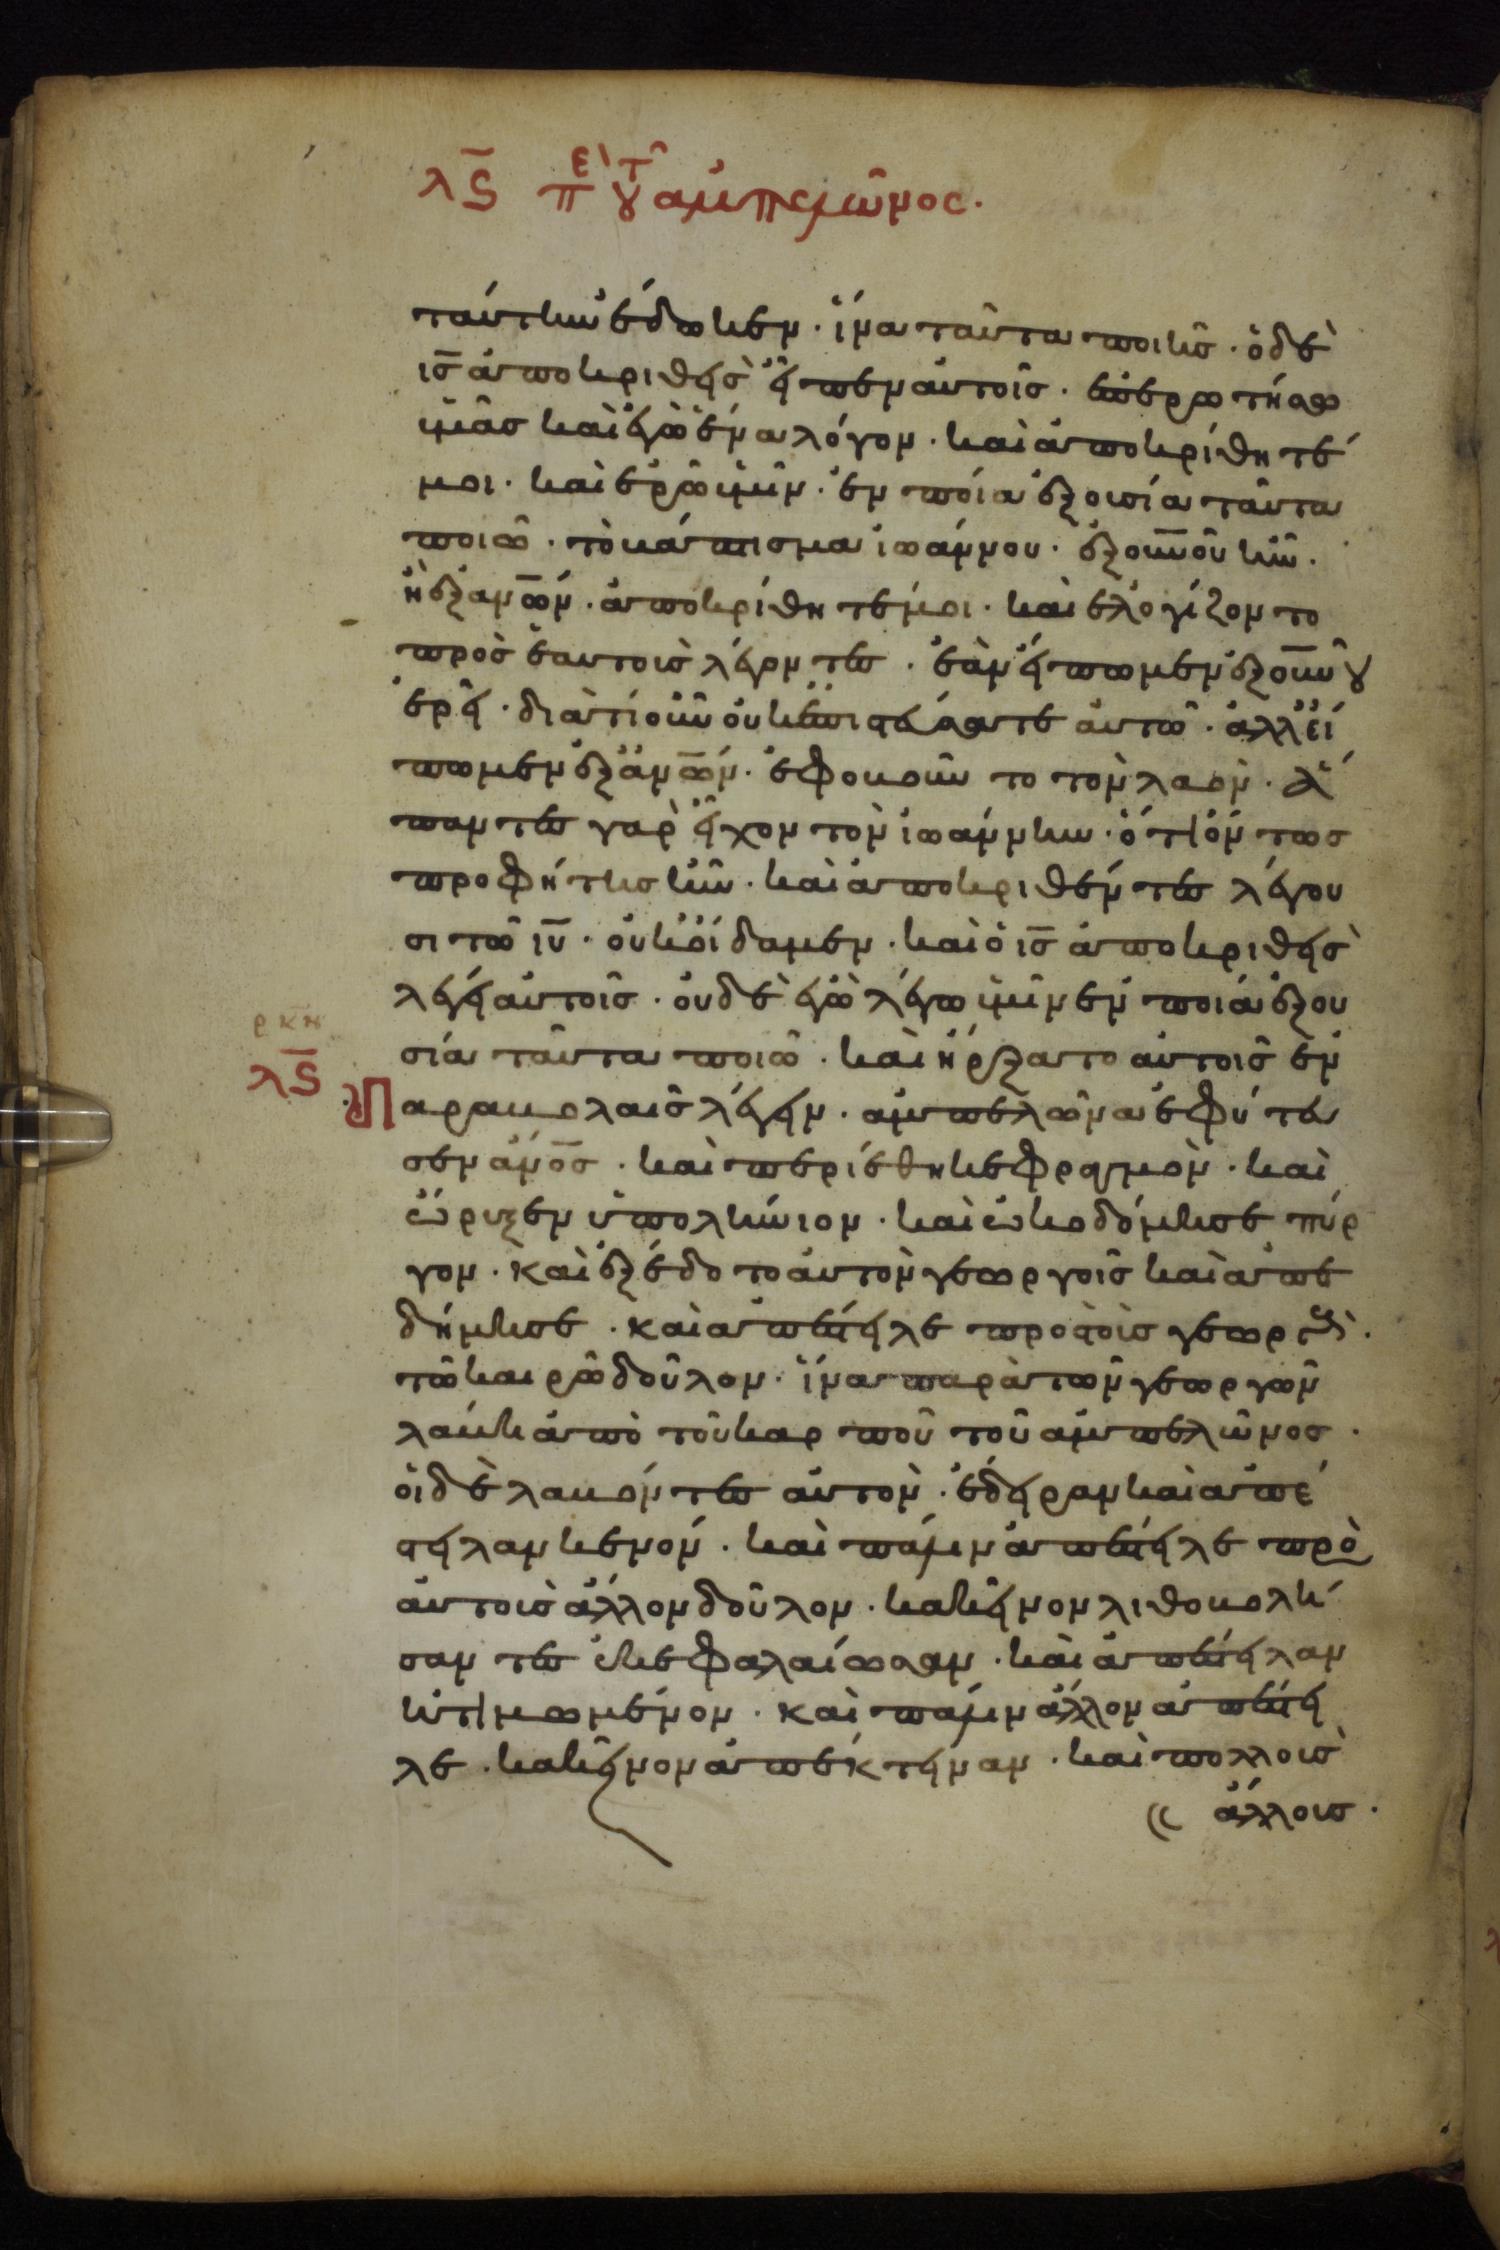 λϛ̄ πε`ρὶ τοῦ ἀμπελῶνος.
ταύτην ἔδωκεν · ἵνα ταῦτα ποιῆς · ὁ δὲ
ις̅ ἀποκριθεὶς εἶπεν αὐτοῖς · ἐπερωτήσω
ὑμᾶς καὶ ἐγὼ ἕνα λόγον · καὶ ἀποκρίθητέ
μοι · καὶ ἐρῶ ὑμῖν · ἐν ποία ἐξουσία ταῦτα
ποιῶ · τὸ βάπτισμα ἰωάννου · ἐξ οὐν̅οῦ ἦν ·
ἢ ἐξ αν̅ων · ἀποκρίθητέ μοι · καὶ ἐλογίζοντο
πρὸς ἑαυτοὺς λέγοντες · ἐὰν εἴπωμεν ἐξ οὐν̅οῦ
ἐρεῖ · διατί οὖν οὐκ ἐπιστεύσατε αὐτῶ · ἀλλ εἴ
πωμεν ἐξ αν̅ων · ἐφοβοῦντο τὸν λαόν · ἅ
παντες γὰρ εἶχον τὸν ἰωάννην · ὅτι ὄντως
προφήτης ἦν · καὶ ἀποκριθέντες λέγου
σι τῶ ιυ̅ · οὐκ οἴδαμεν · καὶ ὁ ις̅ ἀποκριθεὶς
λέγει αὐτοῖς · οὐδὲ ἐγὼ λέγω ὑμῖν ἐν ποία ἐξου
σία ταῦτα ποιῶ · καὶ ἤρξατο αὐτοῖς ἐν
ρκη
λϛ̄
παραβολαῖς λέγειν · ἀμπελῶνα ἐφύτευ
σεν αν̅ος · καὶ περιέθηκε φραγμὸν · καὶ
ὤρυξεν ὑπολήνιον · καὶ ὠκοδόμησε πύρ
γον · καὶ ἐξέδοτο αὐτὸν γεωργοῖς καὶ ἀπε
δήμησε · καὶ ἀπέστειλε πρὸς τοὺς γεωργοὺς ·
τῶ καιρῶ δοῦλον · ἵνα παρὰ τῶν γεωργῶν
λάβη ἀπὸ τοῦ καρποῦ τοῦ ἀμπελῶνος ·
οἱ δὲ λαβόντες αὐτὸν · ἔδειραν καὶ ἀπέ
στειλαν κενόν · καὶ πάλιν ἀπέστειλε πρὸς
αὐτοὺς ἄλλον δοῦλον · κακεῖνον λιθοβολή
σαντες ἐκεφαλαίωσαν · καὶ ἀπέστειλαν
ἠτιμωμένον · καὶ πάλιν ἄλλον ἀπέστει
λε · κακεῖνον ἀπέκτειναν · καὶ πολλοὺς
ἄλλους ·